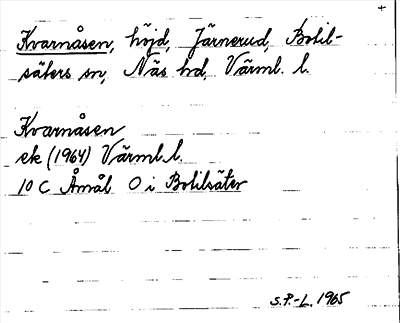 +
Kvarnåsen, höjd, Järnerud, Botil-
säters sn, Näs hd, Värml. l.
Kvarnåsen
ek (1964) Värml. l.
10 C Åmål O i Botilsäter
S.P.-L. 1965